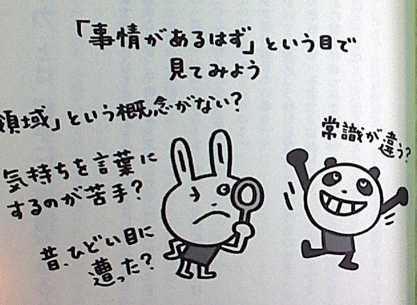 「事情があるはず」という目で
見てみよう
領域」という概念がない？
常識が違う？
気持ちを言葉に
するのが苦手？
昔、ひどい目に
遭った？